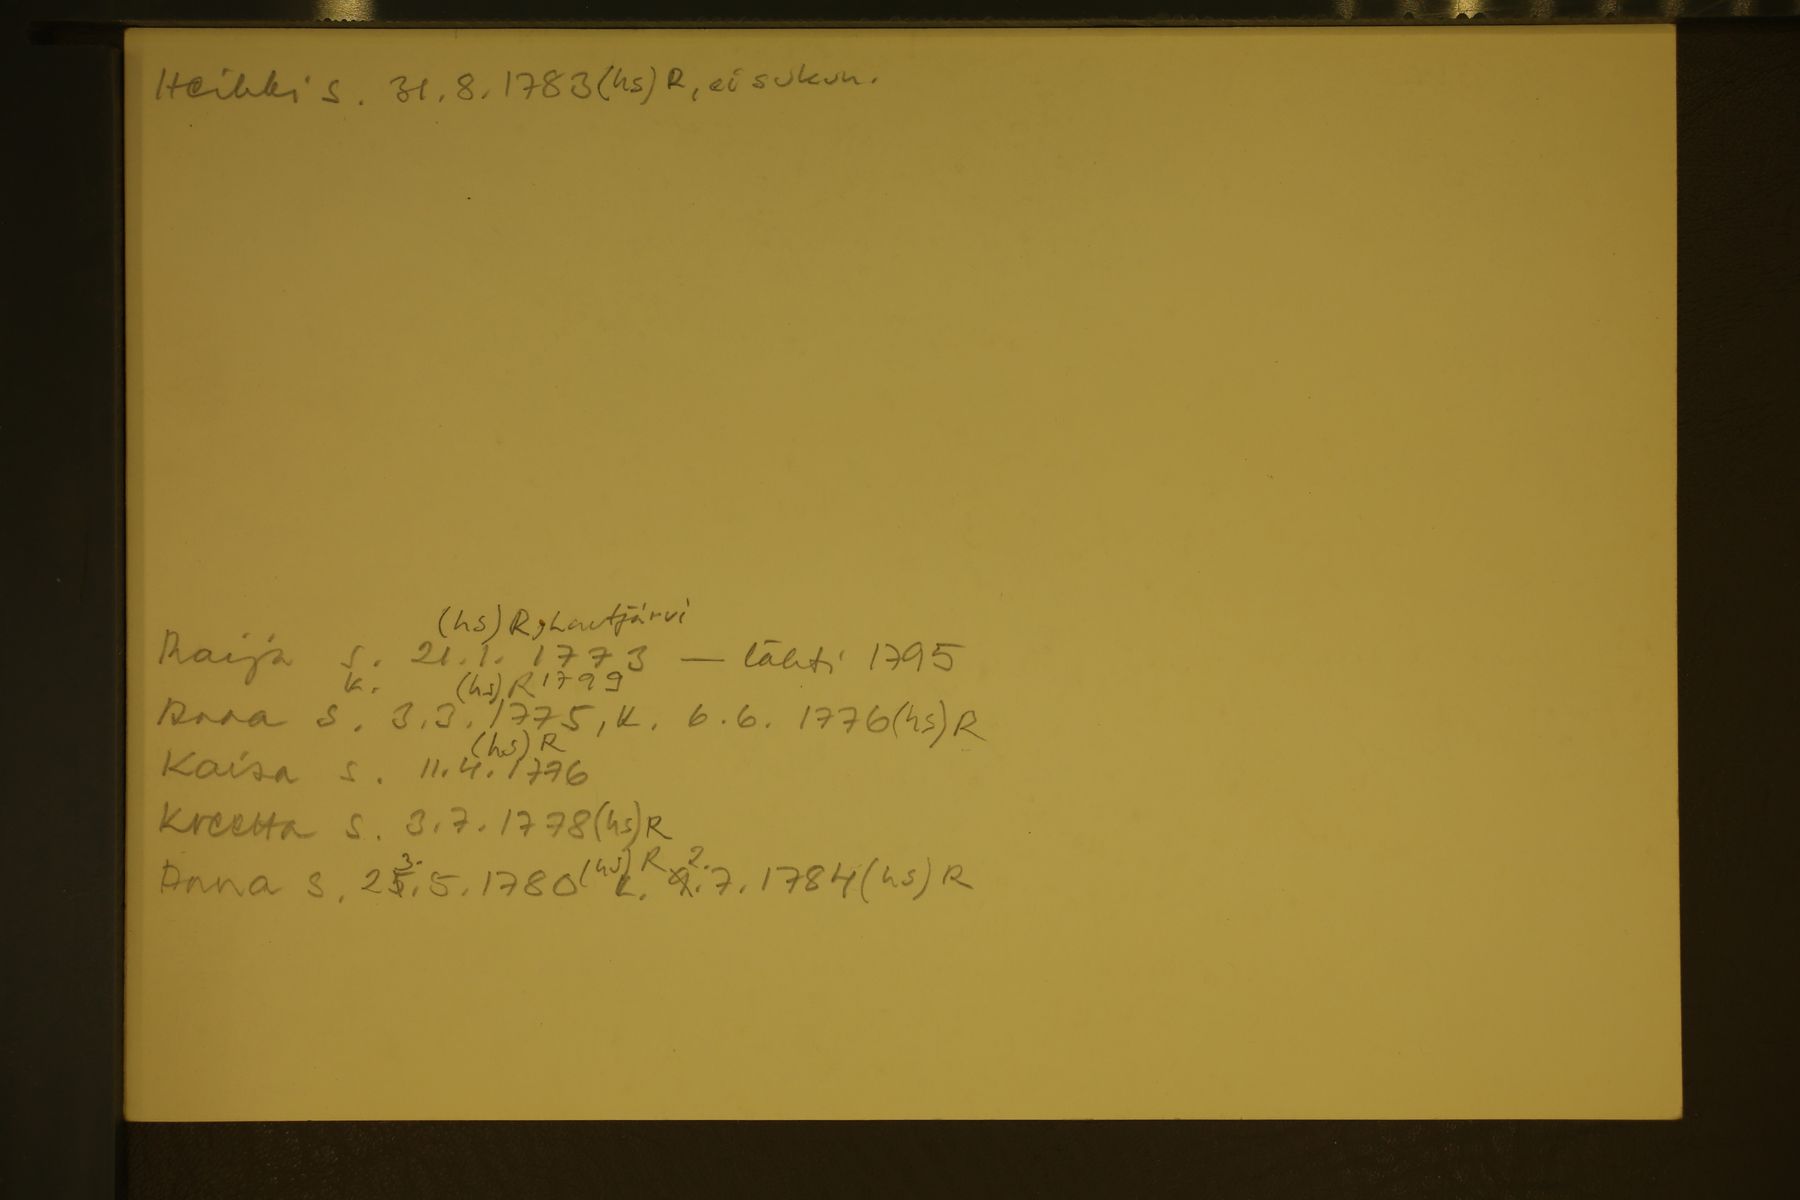 Heikki s. 31.8.1783 (hs) R, ei sukun.
(hs) R, Lautjärvi
Maija s. 21.1. 1773 — lähti 1795
k. (hs) R 1799
Anna s. 3.3. 1775, k. 6.6. 1776 (hs) R
(hs) R
Kaisa s. 11.4. 1776
Kreetta s. 3.7. 1778 (hs) R
3. (hs) R 2.
Anna s. 25.5.1780 k. 9.7.1784 (hs) R